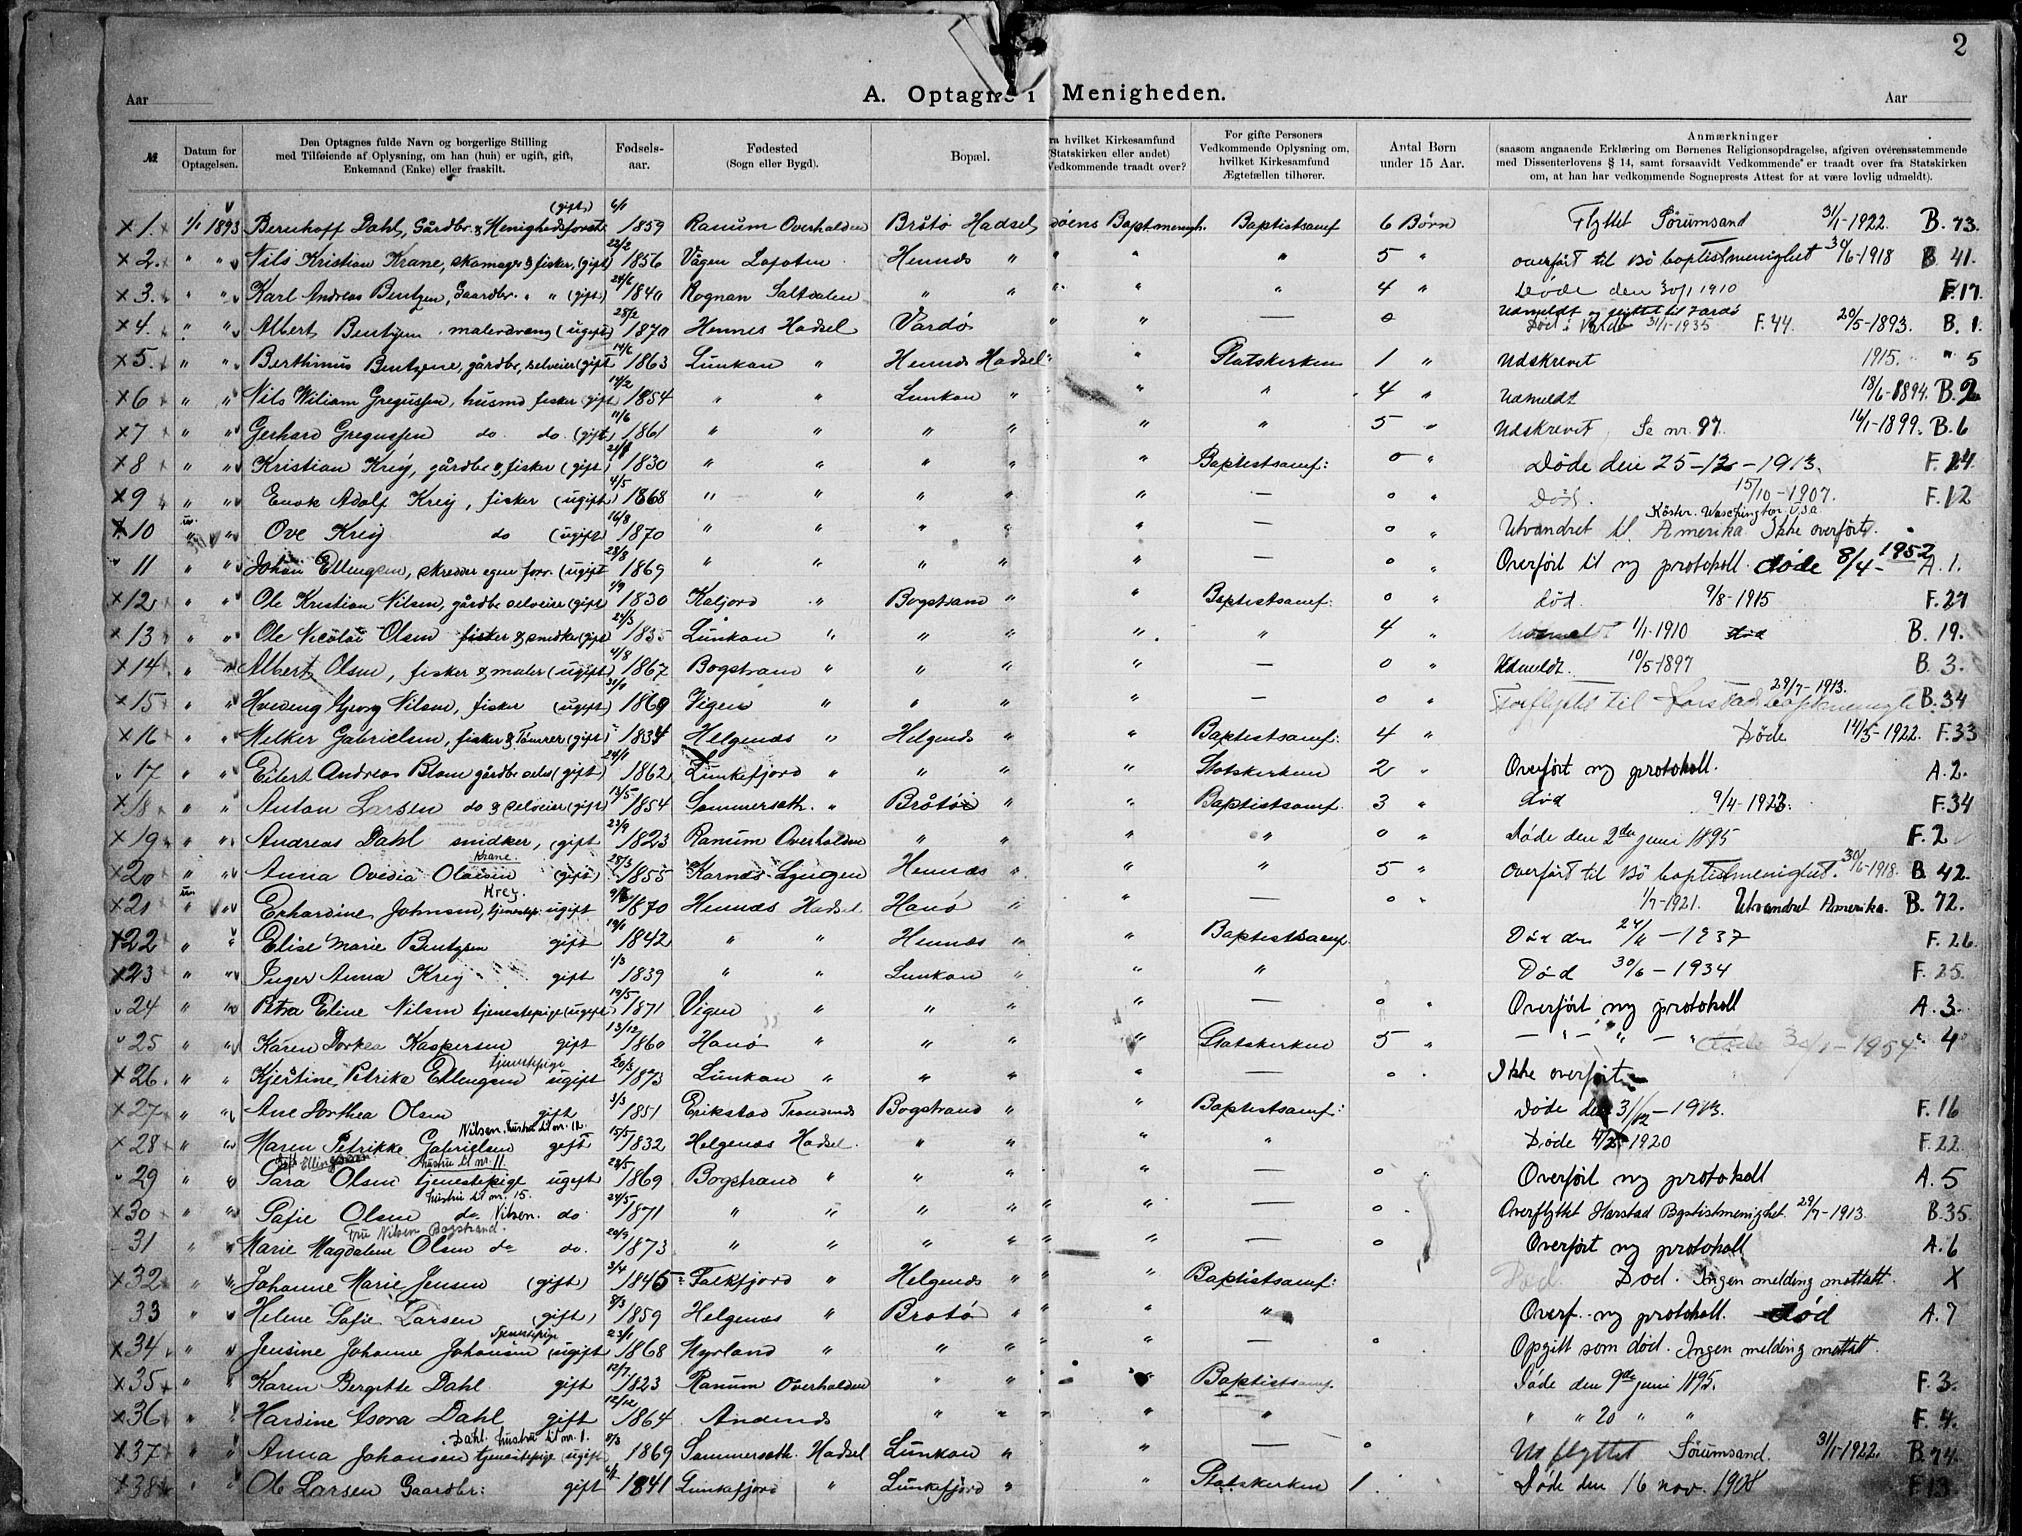 2
Aar A. Optagne i Menigheden. Aar
№ Datum for Optagelsen. Den Optagnes fulde Navn og borgerlige Stilling med Tilføiende af Oplysning, om han (hun) er ugift, gift, Enkemand (Enke) eller fraskilt. Fødsels-aar. Fødested (Sogn eller Bygd). Bopæl. ra hvilket Kirkesamfund Statskirken eller andet) Vedkommende traadt over? For gifte Personers Vedkommende Oplysning om, hvilket Kirkesamfund Ægtefællen tilhører. Antal Børn under 15 Aar. Anmærkninger (saasom angaaende Erklæring om Børnenes Religionsopdragelse, afgiven overensstemmende med Dissenterlovens § 14, samt forsaavidt Vedkommende er traadt over fra Statskirken om, at han har vedkommende Sogneprests Attest for at være lovlig udmeldt).
X 1. 1/1 1893 Bernhoff Dahl, Gårdbr. & Menighedsforst. (gift) 6/1 1859 Ranum Overhalden Bråtø Hadsel søens Baptmenigh. Baptistsamf 6 Børn Flyttet Sörumsand 31/1-1922. B. 73.
X 2. " " Nils Kristian Krane, skomager & fisker, (gift) 22/2 1856 Vågen Lofoten. Hennes " " " 5 " overført til Bö baptistmenighet 30/6-1918 B. 41.
X 3. " " Karl Andreas Bentzen, Gaardbr. " " (gift) 24/6 1840 Rognan Saltdalen " " " " 4 " Døde den 30/1 1910 F.17.
X 4. " " Albert Bentzen, malerdreng (ugift) 28/2 1870 Hennes Hadsel Vardø " " — 0 Udmeldt og flyttet til Vardö Död i Vardö 31/1-1935 F. 44. 20/5-1893. B. 1.
X 5. " " Berthinus Bentzene, gårdbr, selveier (gift) 14/6 1863 Lunkan " Hennes Hadsel " " Statskirken 1 " Udskrevet 1915. " 5
X 6 " " Nils Wiliam Gregussen, husmd fisker (gift) 14/2 1854 " " Lunkan " " " 4 " Udmeldt 18/6-1894. B. 2
X 7 " " Gerhard Gregussen do. do. (gift) 11/6 1861 " " " " " " 5 " Udskrevet Se nr. 97. 16/1-1899. B. 6
X 8 " " Kristian Krey, gårdbr & fisker (gift) 1830 " " " " " Baptistsamf: 0 " Døde den 25-12-1913. F. 24.
X 9 " " Enok Adolf Krey, fisker (ugift) 4/5 1868 " " " " " — 0 " Död. 15/10-1907. F. 12
X 10 " " Ove Krey do (ugift) 16/8 1870 " " " " " — 0 " Utvandret til Amerika. Ikke overført. Köster. Waschington USA
" 11 " " Johan Ellengsen, skredder egen forr. (ugift) 28/8 1869 " " " " " — 0 " Overført til ny protokoll. døde 8/4-1952 A. 1.
X 12 " " Ole Kristian Nilsen, gårdbr selveier (gift) 1/9 1830 Kaljord " Bogstrand " " Baptistsamf: 0 " död. 9/8-1915 F. 27
X 13 " " Ole Nicolai Olsen fisker & snedker (gift) 21/3 1835 Lunkan " " " " " 4 " Udmeldt 1/1-1910 død B. 19.
X 14 " " Albert Olsen, fisker & maler (ugift) 4/8 1867 Bogstrand " " " " — 0 " Udmeldt. 10/5-1897 B. 3.
X 15 " " Hveding Georg Nilsen, fisker (ugift) 1869 Vigen " " " " — 0 " Forflyttet til Harstad baptmenigh 29/7-1913. B. 34
X 16 " " Melker Gabrielsen, fisker & Tømrer (gift) 1834 Helgenes " Helgenes " " Baptistsamf: 4 " Døde 14/5-1922. F. 33
" 17 " " Eilert Andreas Blom gårdbr selv (gift) 24/1 1862 Lunkefjord " " " " Statskirken 2 " Overført ny protokoll. A. 2.
X 18 " " Anton Larsen do & selveier (gift) 13/5 1854 Sommerseth. " Bråtø " " Baptistsamf. 3 " död 9/4-1923. F. 34
X 19 " " Andreas Dahl snidker, (gift) 23/9 1823 Ranum Overhalden " " " " 0 " døde den 2den juni 1895 F. 2
X 20 " " Anna Ovidia Olavin Krane. (gift) 28/3 1855 Karnes Lyngen Hennes " " " 5 " Overført til Bö baptistmenighet. 30/6-1918. B. 42.
X 21 " " Erhardine Johnsen, Krey. tjenestep: ugift 1870 Hennes Hadsel Hanö " " — 0 " 1/7-1921. Utvandret Amerika. B. 72.
X 22 " " Elise Marie Bentzen gift 19/1 1842 " " Hennes " " Baptistsamf Död den 24/11-1937 F. 26.
X 23 " " Inger Anna Krey gift 1/3 1839 " " Lunkan " " " Död 30/6-1934 F. 25.
" 24 " " Petra Eline Nilsen tjenestepige (ugift) 19/5 1871 Vigen " " " " — 0 " Overført ny protokoll A. 3.
" 25 " " Karen Dorkea Kaspersen gift 13/12 1860 Hanö " " " " Statskirken 5 " — " — " — " døde 30/1-1954 " 4
X 26. " " Kjerstine Petrika Ellengsen tjenestepige ugift 20/3 1873 Lunkan " " " " — 0 Ikke overført
X 27 " " Ane Dorthea Olsen gift 3/3 1851 Erikstad Trondenes Bogstrand " " Baptistsamf: Døde den 31/12-1913. F. 16
X 28 " " Maren Petrikke Gabrielsen Nilsen. hustru til nr. 12. gift 15/5 1832 Helgenes Hadsel " " " " Døde 4/2 1920 F. 22.
" 29 " " Sara Olsen gift Ellingsen hustru til nr. 11 tjenestepige ugift 28/5 1869 Bogstrand " " " " — 0 " Overført ny protokoll A. 5
X 30 " " Sofie Olsen hustru til nr. 15. do Nilsen. do. 24/5 1871 " " " " " — 0 Overflyttet Harstad Baptistmenighet 29/7-1913. B. 35.
31 " " Marie Magdalene Olsen Fru Nilsen Bogstrand. do do. 20/9 1873 " " " " " — 0 Overført ny protokoll A. 6
X 32 " " Johanne Marie Jensen (gift) 3/4 1845 Falkfjord " Helgenes " " Baptistsamf: Död. Död. Ingen melding mottatt. X
33 " " Helene Sofie Larsen (gift) 8/3 1859 Helgenes " Brotö " " " Overf. ny protokoll. død A. 7
X 34 " " Jensine Johanne Johansen tjenestepige (ugift) 23/1 1868 Myrland " " " " — 0 Opgitt som død. Ingen melding mottatt.
X 35 " " Karen Bergitte Dahl gift 12/7 1823 Ranum Overhalden " " " Baptistsamf. Døde den 9de juni 1895. F. 3.
X 36 " " Hardine Asora Dahl gift 12/12 1864 Andenes " " " " " " 20 " " F. 4.
X 37 " " Anna Johansen Dahl. hustru til nr. 1. tjenestepige (ugift) 8/3 1869 Sommerseth. Hadsel Lunkan " " — 0 Ut flyttet Sörumsand. 31/1-1922. B. 74.
X 38 " " Ole Larsen Gaardbr: gift 1841 Lunkefjord " Lunkefjord " " Statskirken 1 Døde den 16 nov. 1908 F. 13.